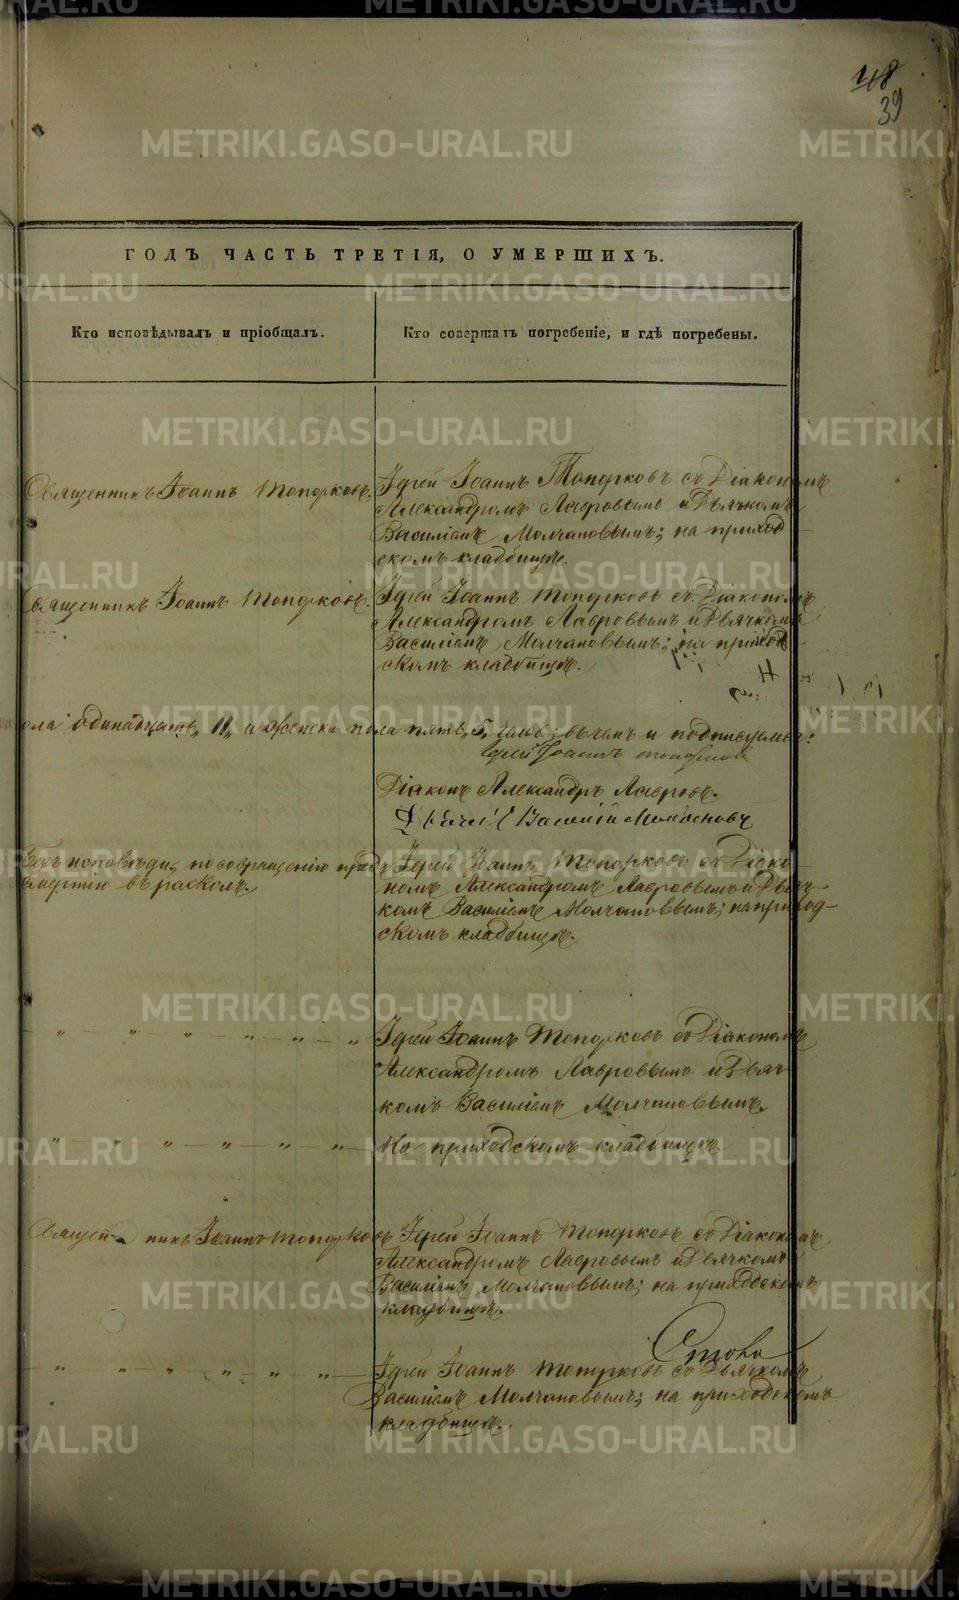 48
39
ГОДЪ ЧАСТЬ ТРЕТІЯ, О УМЕРШИХЪ.
Кто исповѣдывалъ и пріобщалъ.
Кто совершалъ погребеніе, и гдѣ погребены.
Священникъ Іоаннъ Топорковъ.
Іерей Іоаннъ Топорковъ съ Діакономъ
Александромъ Лавровымъ и Дьячкомъ
Василіемъ Молчановымъ; на приход
скомъ кладбищѣ.
Священникъ Іоаннъ Топорковъ.
Іерей Іоаннъ Топорковъ съ Діакономъ
Александромъ Лавровымъ и Дьячкомъ
Василіемъ Молчановымъ; на приход
скомъ кладбищѣ.
пола одинадцать, 11, и женска пола пять, 5, челов: въ чемъ и подписуемся:
Іерей Іоаннъ Топорковъ
Діаконъ Александръ Лавровъ.
Дьячекъ Василій Молчановъ
Безъ исповѣди, по совращенію предъ
смертію въ расколъ.
Іерей Іоаннъ Топорковъ съ Діако-
номъ Александромъ Лавровымъ и Дьяч-
комъ Василіемъ Молчановымъ; на приход-
скомъ кладбищѣ.
Іерей Іоаннъ Топорковъ съ Діакономъ
Александромъ Лавровымъ и Дьяч
комъ Василіемъ Молчановымъ.
На приходскомъ кладбищѣ.
Священникъ Іоаннъ Топорковъ
Іерей Іоаннъ Топорковъ съ Діакономъ
Александромъ Лавровымъ и Дьячкомъ
Василіемъ Молчановымъ; на приходскомъ
кладбищѣ.
Іерей Іоаннъ Топорковъ съ Дьячкомъ
Василіемъ Молчановымъ; на приходскомъ
кладбищѣ.
METRIKI.GASO-URAL.RU